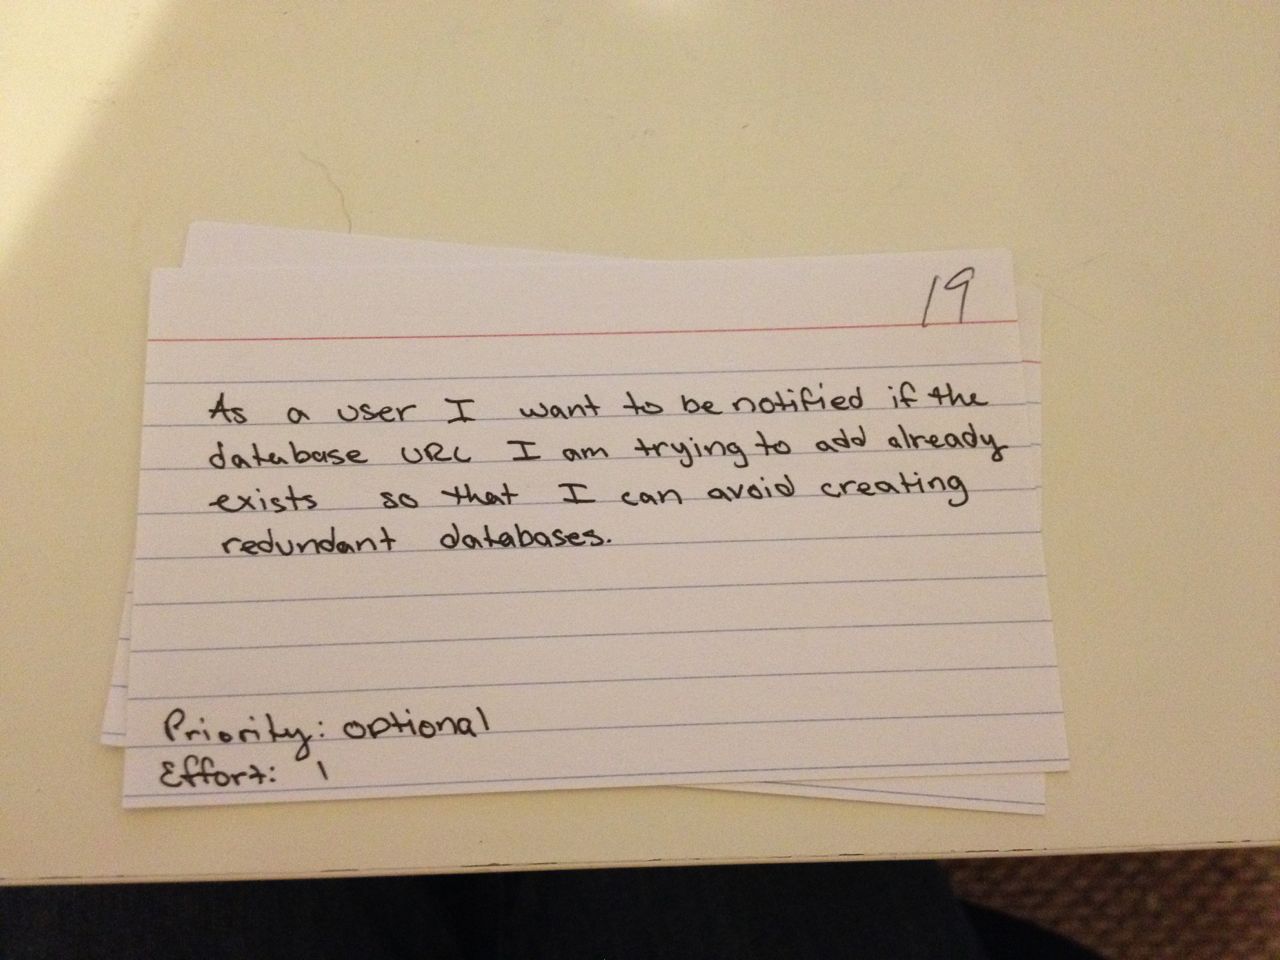 19
As a user I want to be notified if the
database URL I am trying to add already
exists so that I can avoid creating
redundant databases.
Priority: optional
Effort: 1